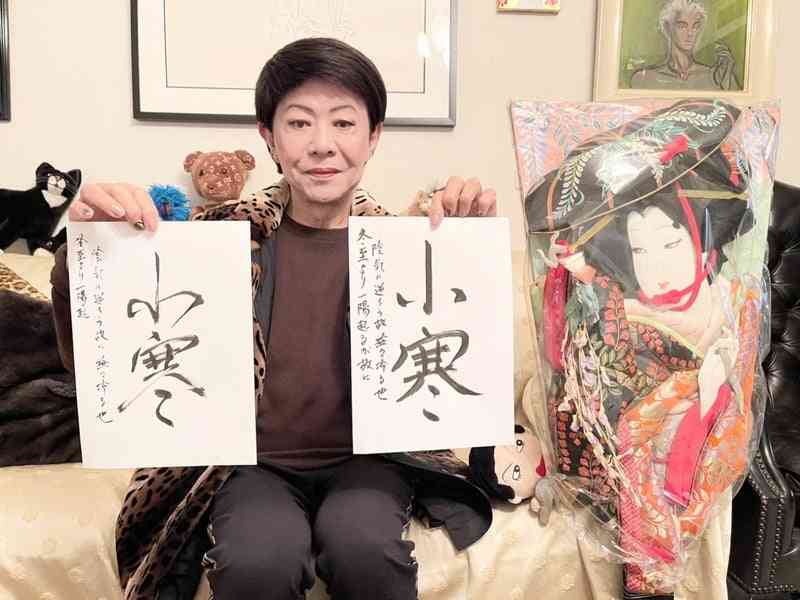 小寒
陰気に逆らう故益々冷る也
冬至より一陽起るが故に
小寒
陰気に逆らう故に益々冷る也
冬至より一陽起